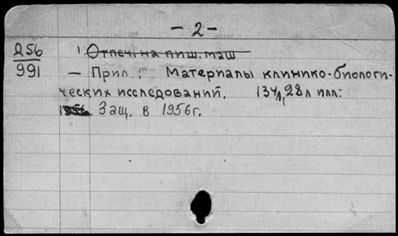 - 2 -
Д56
991
1 Отпеч. на пиш. маш
- Прил.: Материалы клинико-биологи-
ческих исследований. 134л, 28л илл.
1956 Защ. в 1956г.